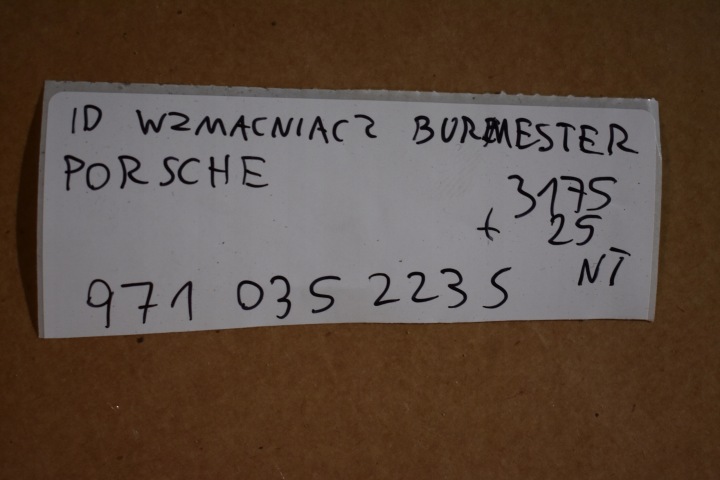 ID WZMACNIACZ BURMESTER
PORSCHE
3175
+ 25
NT
971 035 223 S